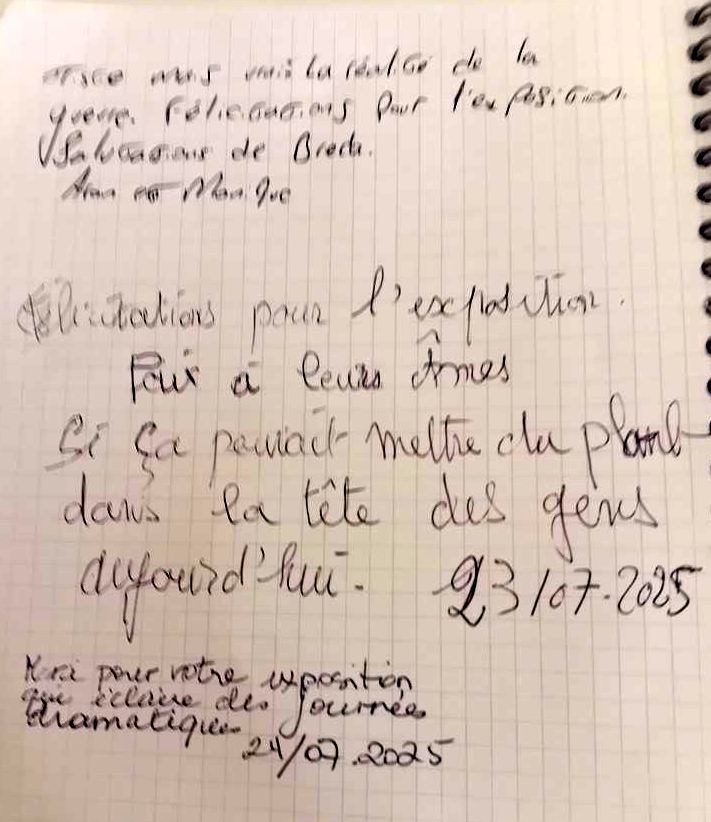 mais vrai la réalité de la
guerre. Félicitations pour l'exposition.
Salutations de Breda.
et Monique
Félicitations pour l'exposition.
Paix à leurs Âmes
Si ça pouvait mettre du plomb
dans la tête des gens
aujourd'hui. 23/07.2025
pour votre exposition
qui éclaire des journées
dramatiques
24/07.2025